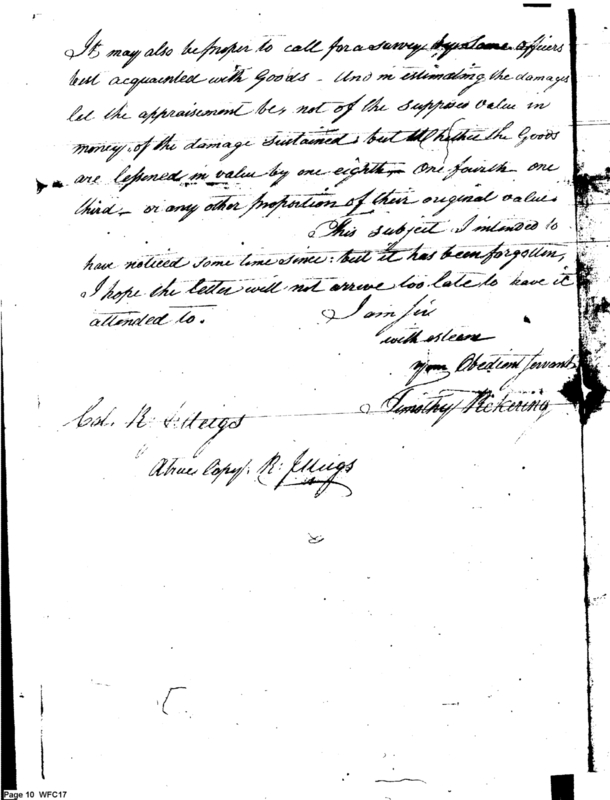 It may also be proper to call for a survey by some officers
best acquainted with Goods - And in estimating the damages
let the appraisement be, not of the supposed value in
money, of the damage sustained, but whether the Goods
are lessened in value by one eighth - One fourth one
third - or any other proportion of their original value.
This subject I intended to
have noticed some time since: but it has been forgotten,
I hope the letter will not arrive too late to have it
attended to.
I am Sir
with esteem
your Obedient Servant
Timothy Pickering
Col. R. J. Meigs
A true Copy. R: J Meigs
Page 10 WFC17